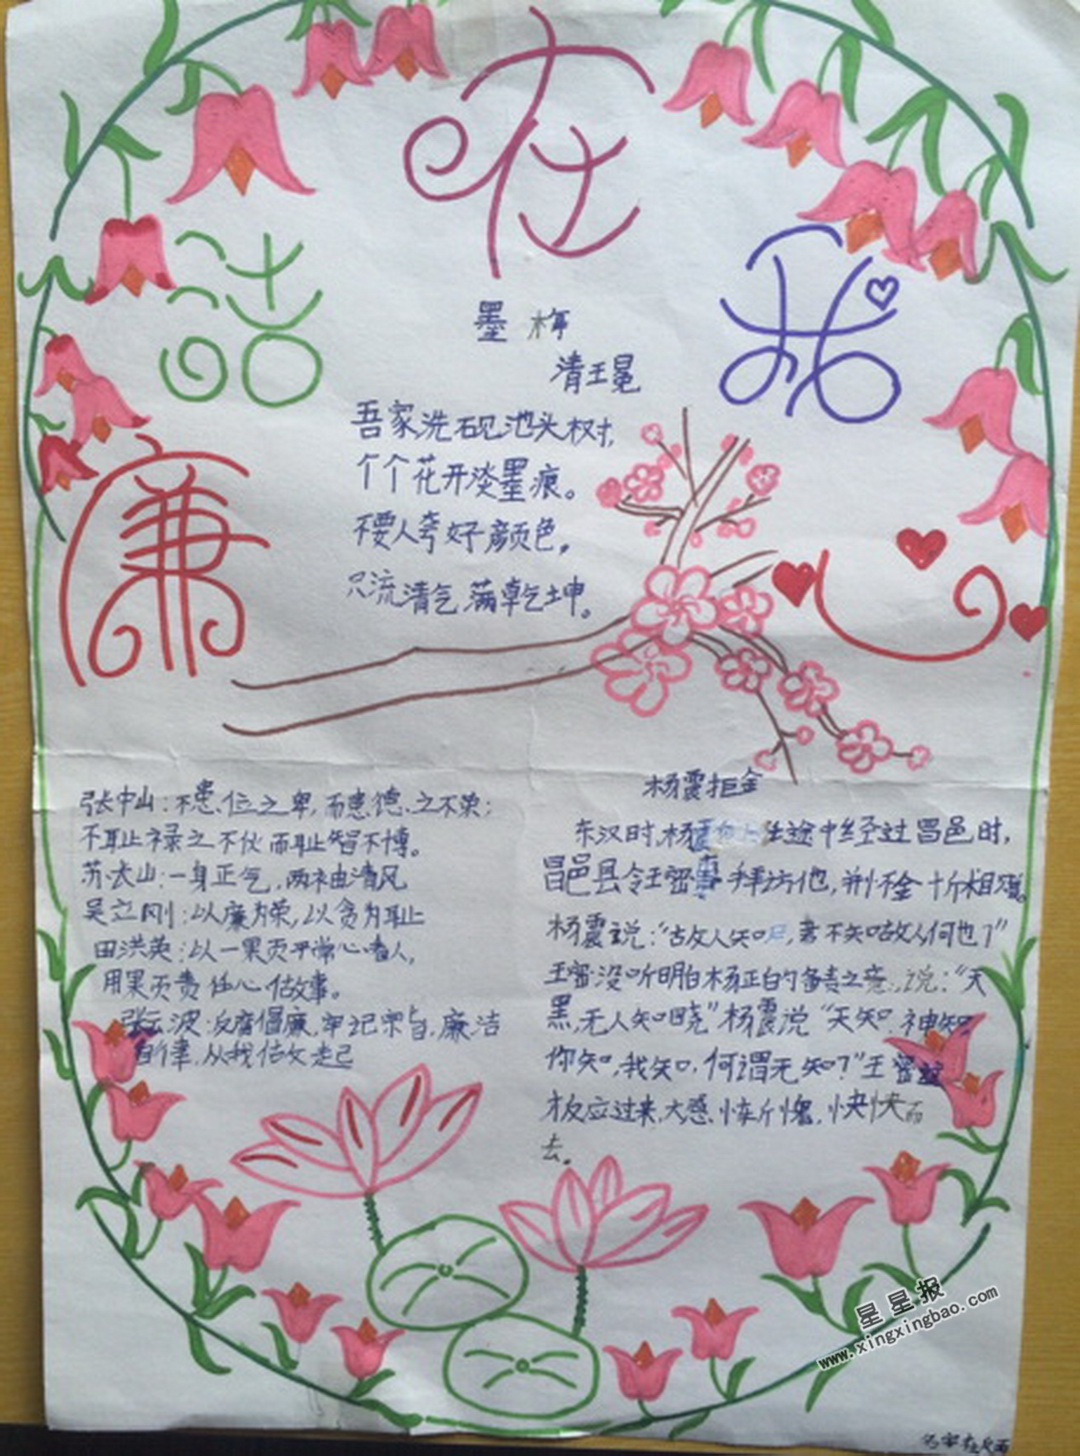 廉
洁
在
我
心
墨梅
清王冕
吾家洗砚池头树,
个个花开淡墨痕。
不要人夸好颜色,
只流清气满乾坤。
张中山:不患位之卑,而患德之不荣;
不耻禄之不伙而耻智不博。
苏长山:一身正气,两袖清风
吴立刚:以廉为荣,以贪为耻
田洪英:以一果页平常心看人,
用果页责任心估故事。
张云波:反腐倡廉,牢记宗旨,廉洁
自律,从我估文起己
杨震拒金
东汉时,杨震 仕途中经过昌邑时,
昌邑县令王密 拜访他,并怀金十斤相
杨震说:“古攵人知 ,君不知古攵人何也?”
王密没听明白杨正白勺备责之意,说:“天
黑,无人知晓”杨震说“天知,神知
你知,我知,何谓无知?”王密
才反应过来,大感惭愧,怏怏而
去。
星星报
www.xingxingbao.com